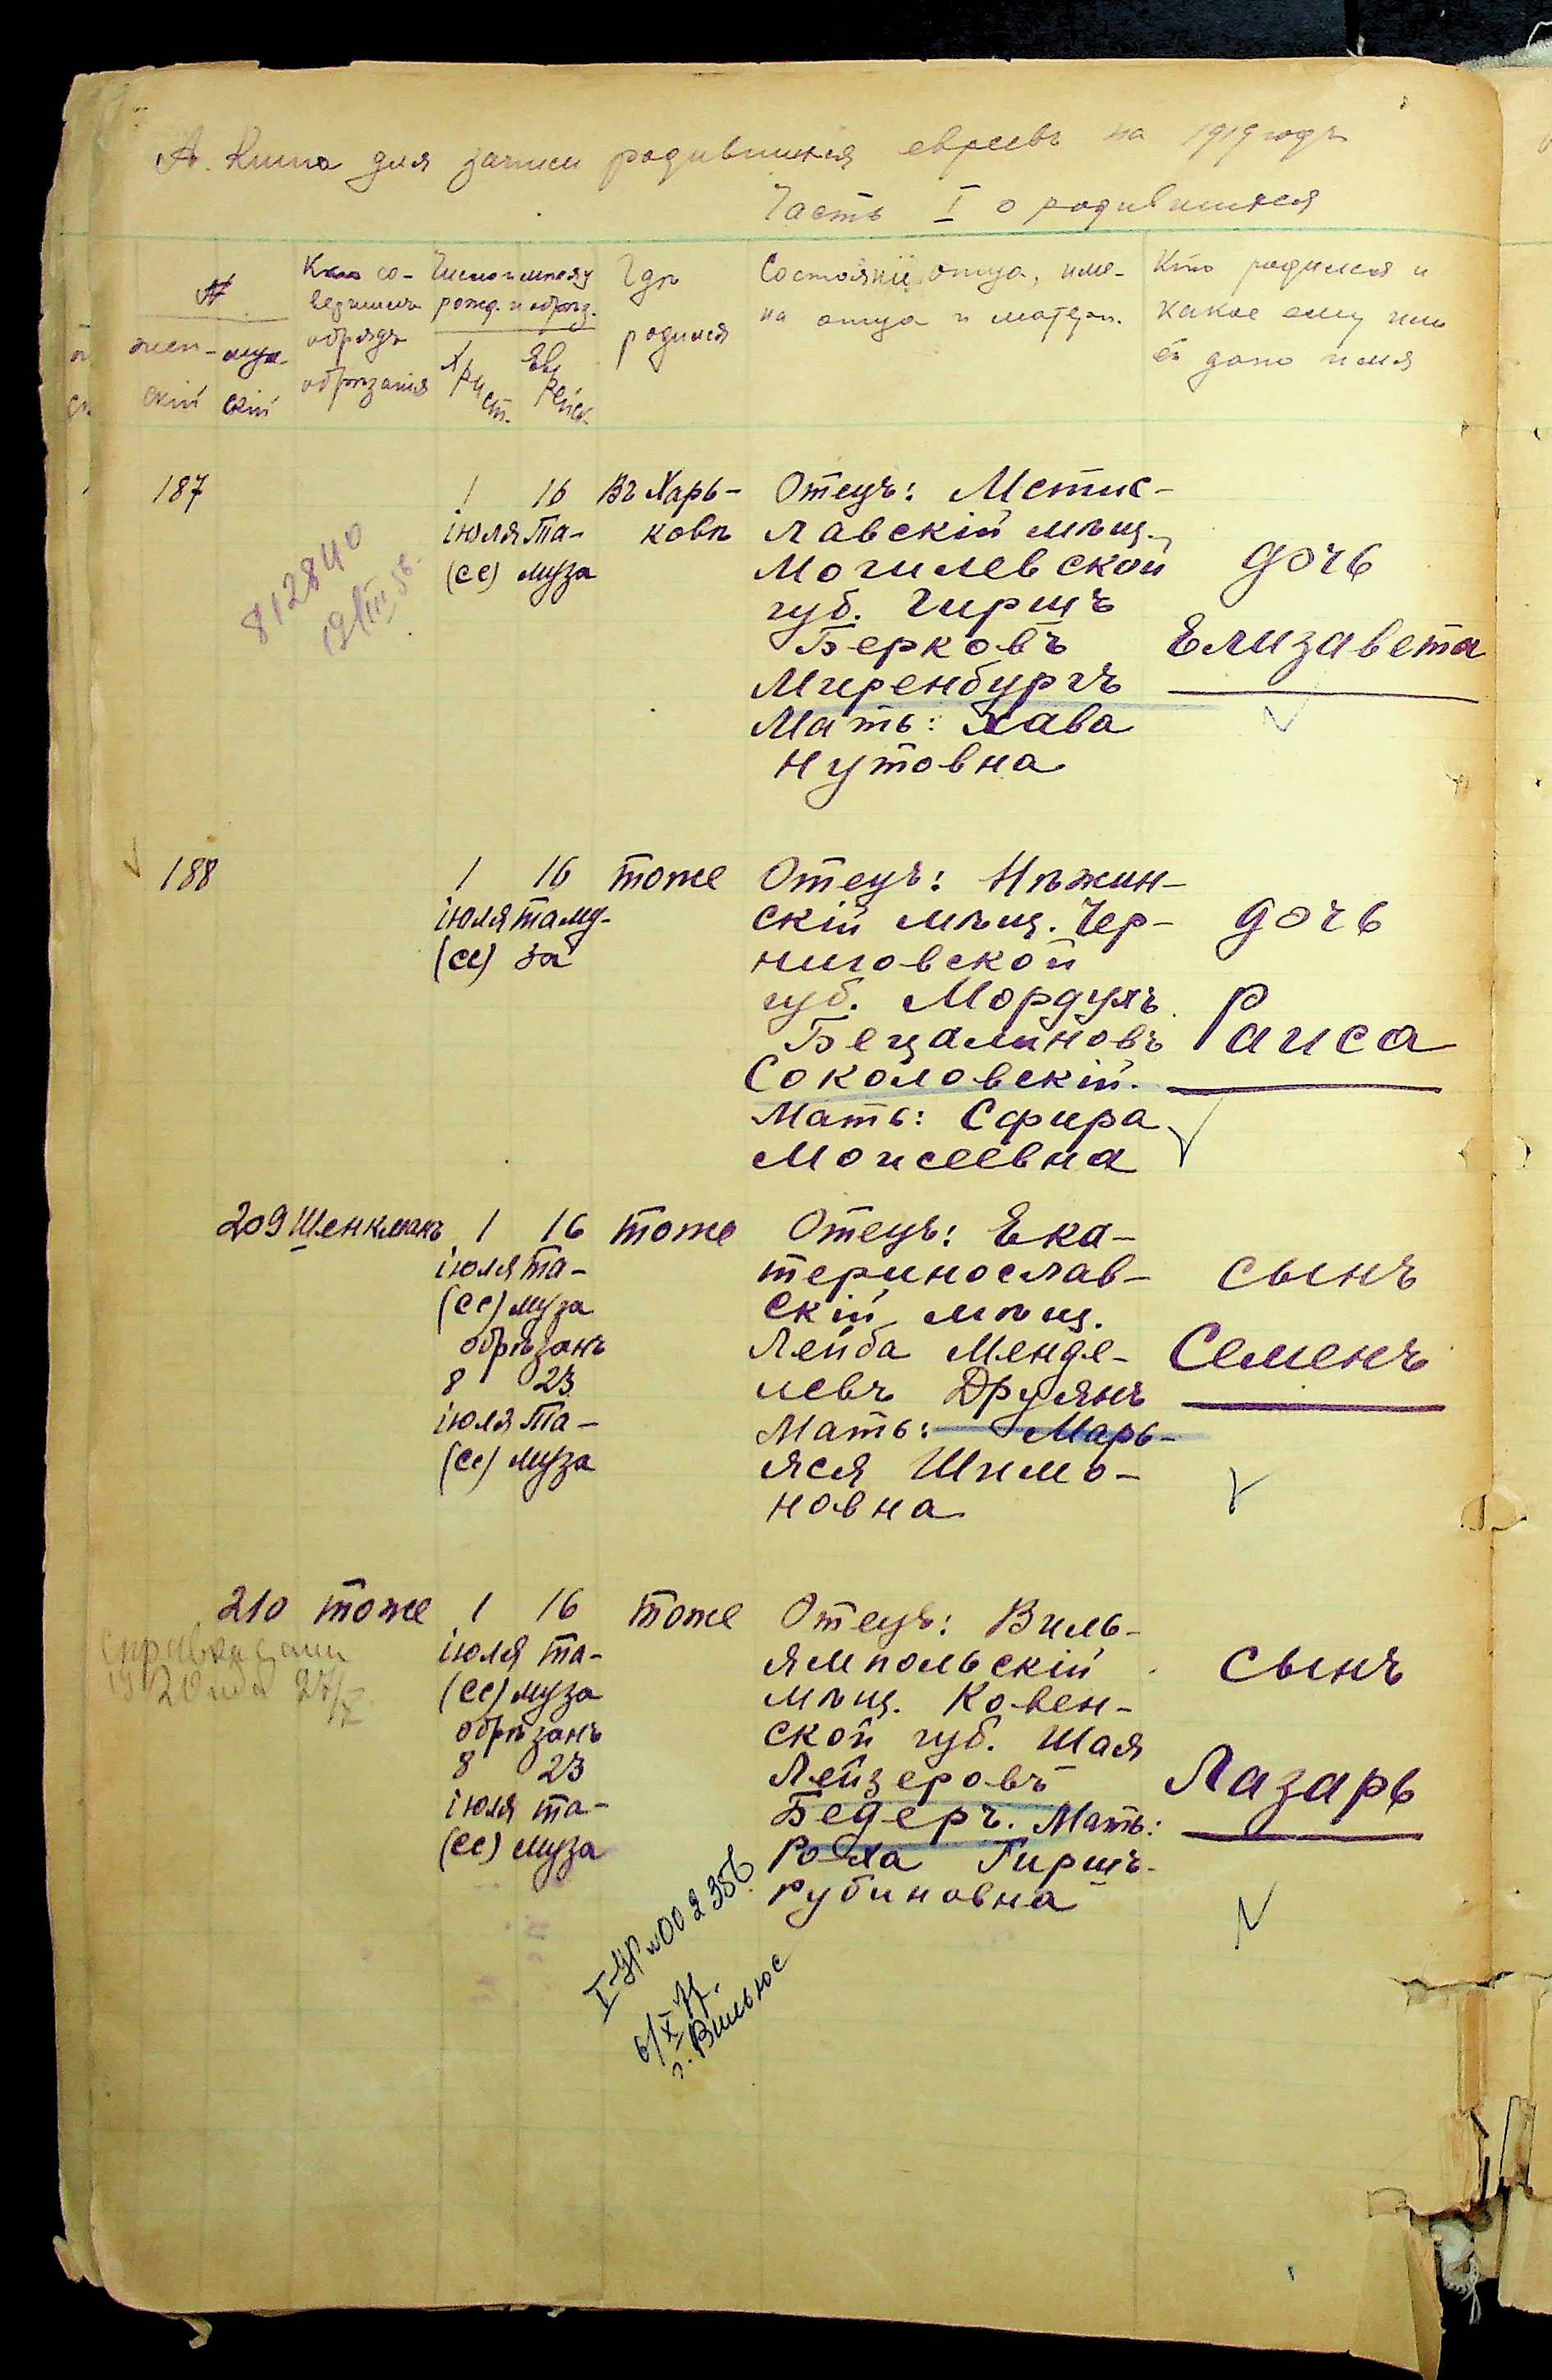 А. Книга для записи родившихся евреевъ на 1919 годъ
Часть I о родившихся
№
жен-
скій
муж-
ской
Кто со-
вершилъ
обрядъ
обрѣзанія
Число и мѣсяцъ
рожд. и обрѣз.
Христ.
Еврейск.
Гдѣ
родился
Состояніе отца, име-
на отца и матери.
Кто родился и
какое ему или
ей дано имя
187
1
іюля
(сс)
16
Та-
муза
Въ Харь-
ковѣ
Отецъ: Мстис-
лавскій мѣщ.
Могилевской
губ. Гиршъ
Берковъ
Миренбургъ
Мать: Хава
Нутовна
дочь
Елизавета
812840
19/III 58.
188
1
іюля
(сс)
16
таму-
за
тоже
Отецъ: Нѣжин-
скій мѣщ. Чер-
ниговской
губ. Мордухъ
Бецалиновъ
Соколовскій.
Мать: Сфира
Моисеевна
дочь
Раиса
209
Шенкманъ
1
іюля
(сс)
16
Та-
муза
обрѣзанъ
8
іюля
(сс)
23
Та-
муза
тоже
Отецъ: Ека-
теринослав-
скій мѣщ.
Лейба Менде-
левъ Друянъ
Мать: Марь-
яся Шимо-
новна
сынъ
Семенъ
210
тоже
1
іюля
(сс)
16
та-
муза
обрѣзанъ
8
іюля
(сс)
23
та-
муза
тоже
Отецъ: Виль-
ямпольскій
мѣщ. Ковен-
ской губ. Шая
Лейзеровъ
Бедеръ. Мать:
Роха Гиршъ-
рубиновна
сынъ
Лазарь
I-УР №002356
6/X 77.
г. Вильнюс